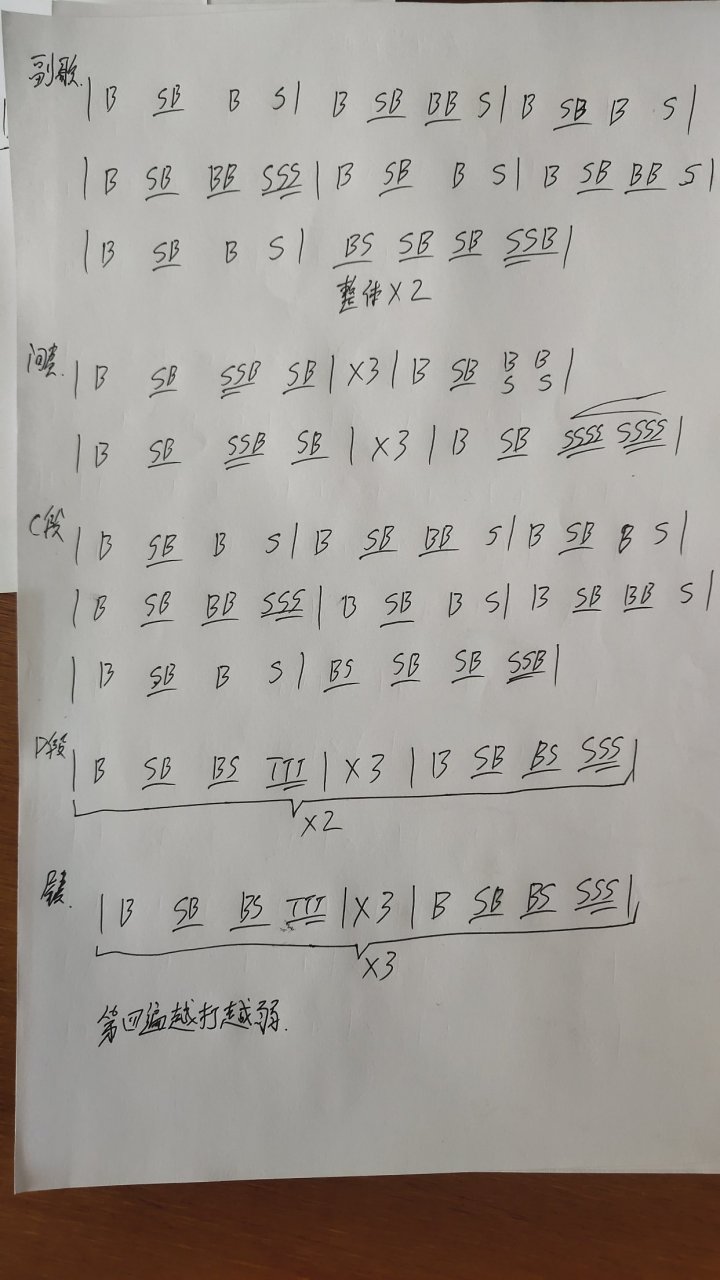 副歌. | B SB B S | B SB BB S | B SB B S |
| B SB BB SSS | B SB B S | B SB BB S |
| B SB B S | BS SB SB SSB |
整体 X2
间奏. | B SB SSB SB | X3 | B SB B B |
S S
| B SB SSB SB | X3 | B SB SSSS SSSS |
C段 | B SB B S | B SB BB S | B SB B S |
| B SB BB SSS | B SB B S | B SB BB S |
| B SB B S | BS SB SB SSB |
D段 | B SB BS TTT | X3 | B SB BS SSS |
X2
尾奏. | B SB BS TTT | X3 | B SB BS SSS |
X3
第四遍越打越弱.